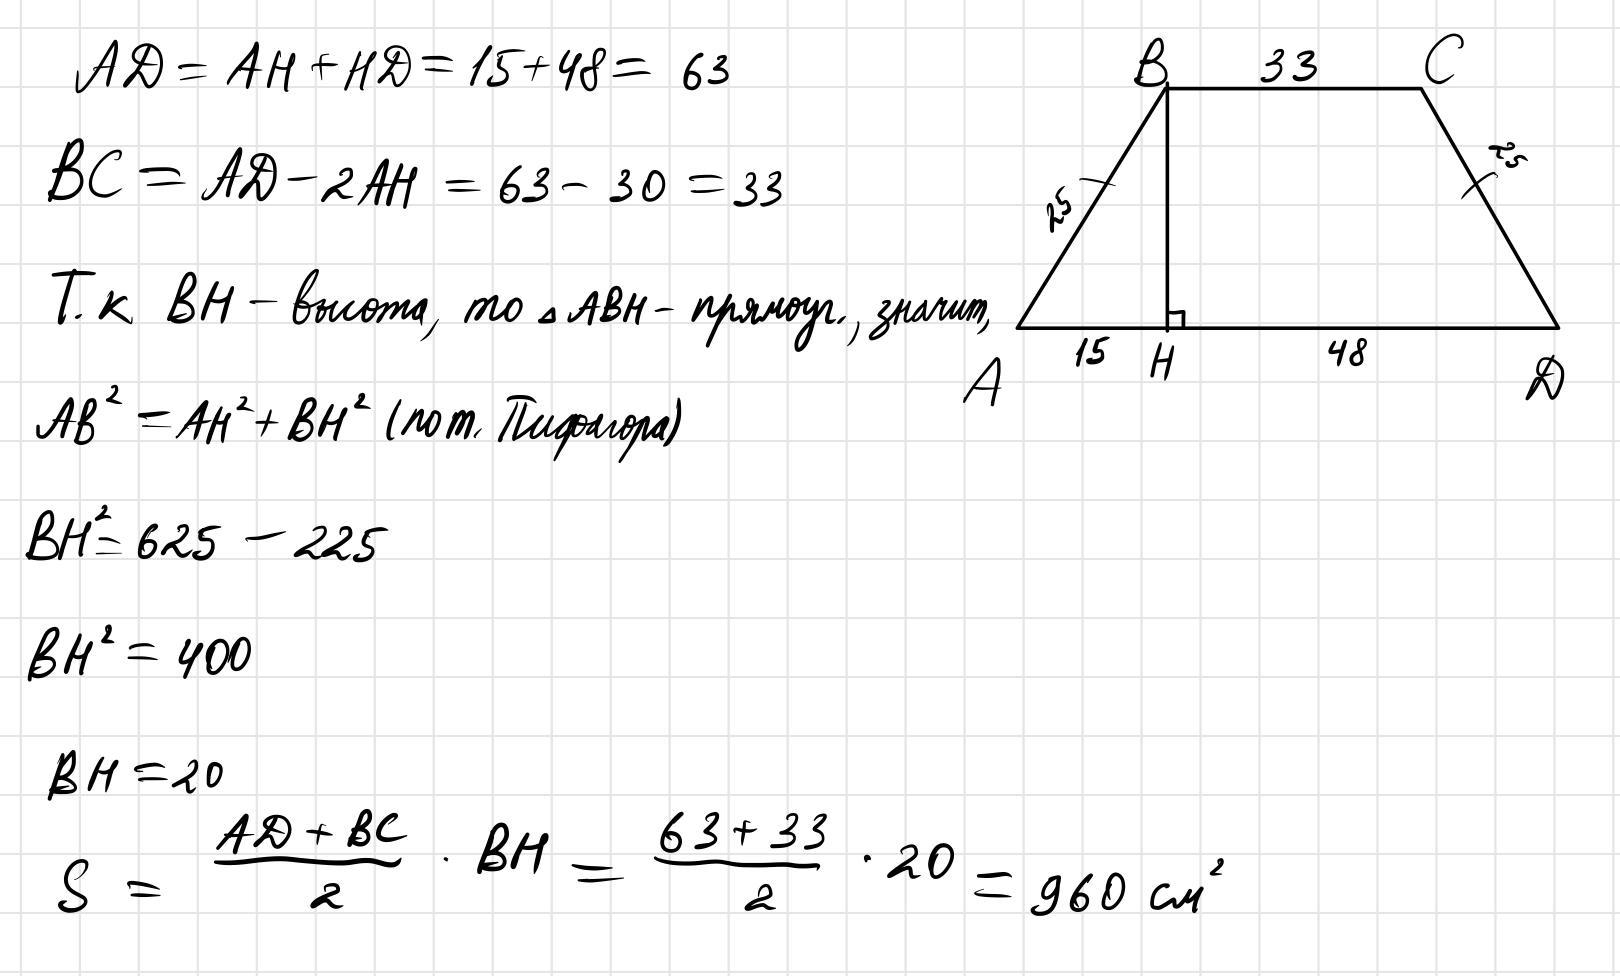 AD = AH + HD = 15 + 48 = 63
BC = AD - 2AH = 63 - 30 = 33
Т.к BH - высота, то △ABH - прямоуг., значит,
AB² = AH² + BH² (по т. Пифагора)
BH² = 625 - 225
BH² = 400
BH = 20
S = (AD + BC)/2 · BH = (63 + 33)/2 · 20 = 960 см²
B 33 C
25 25
15 48
A H D